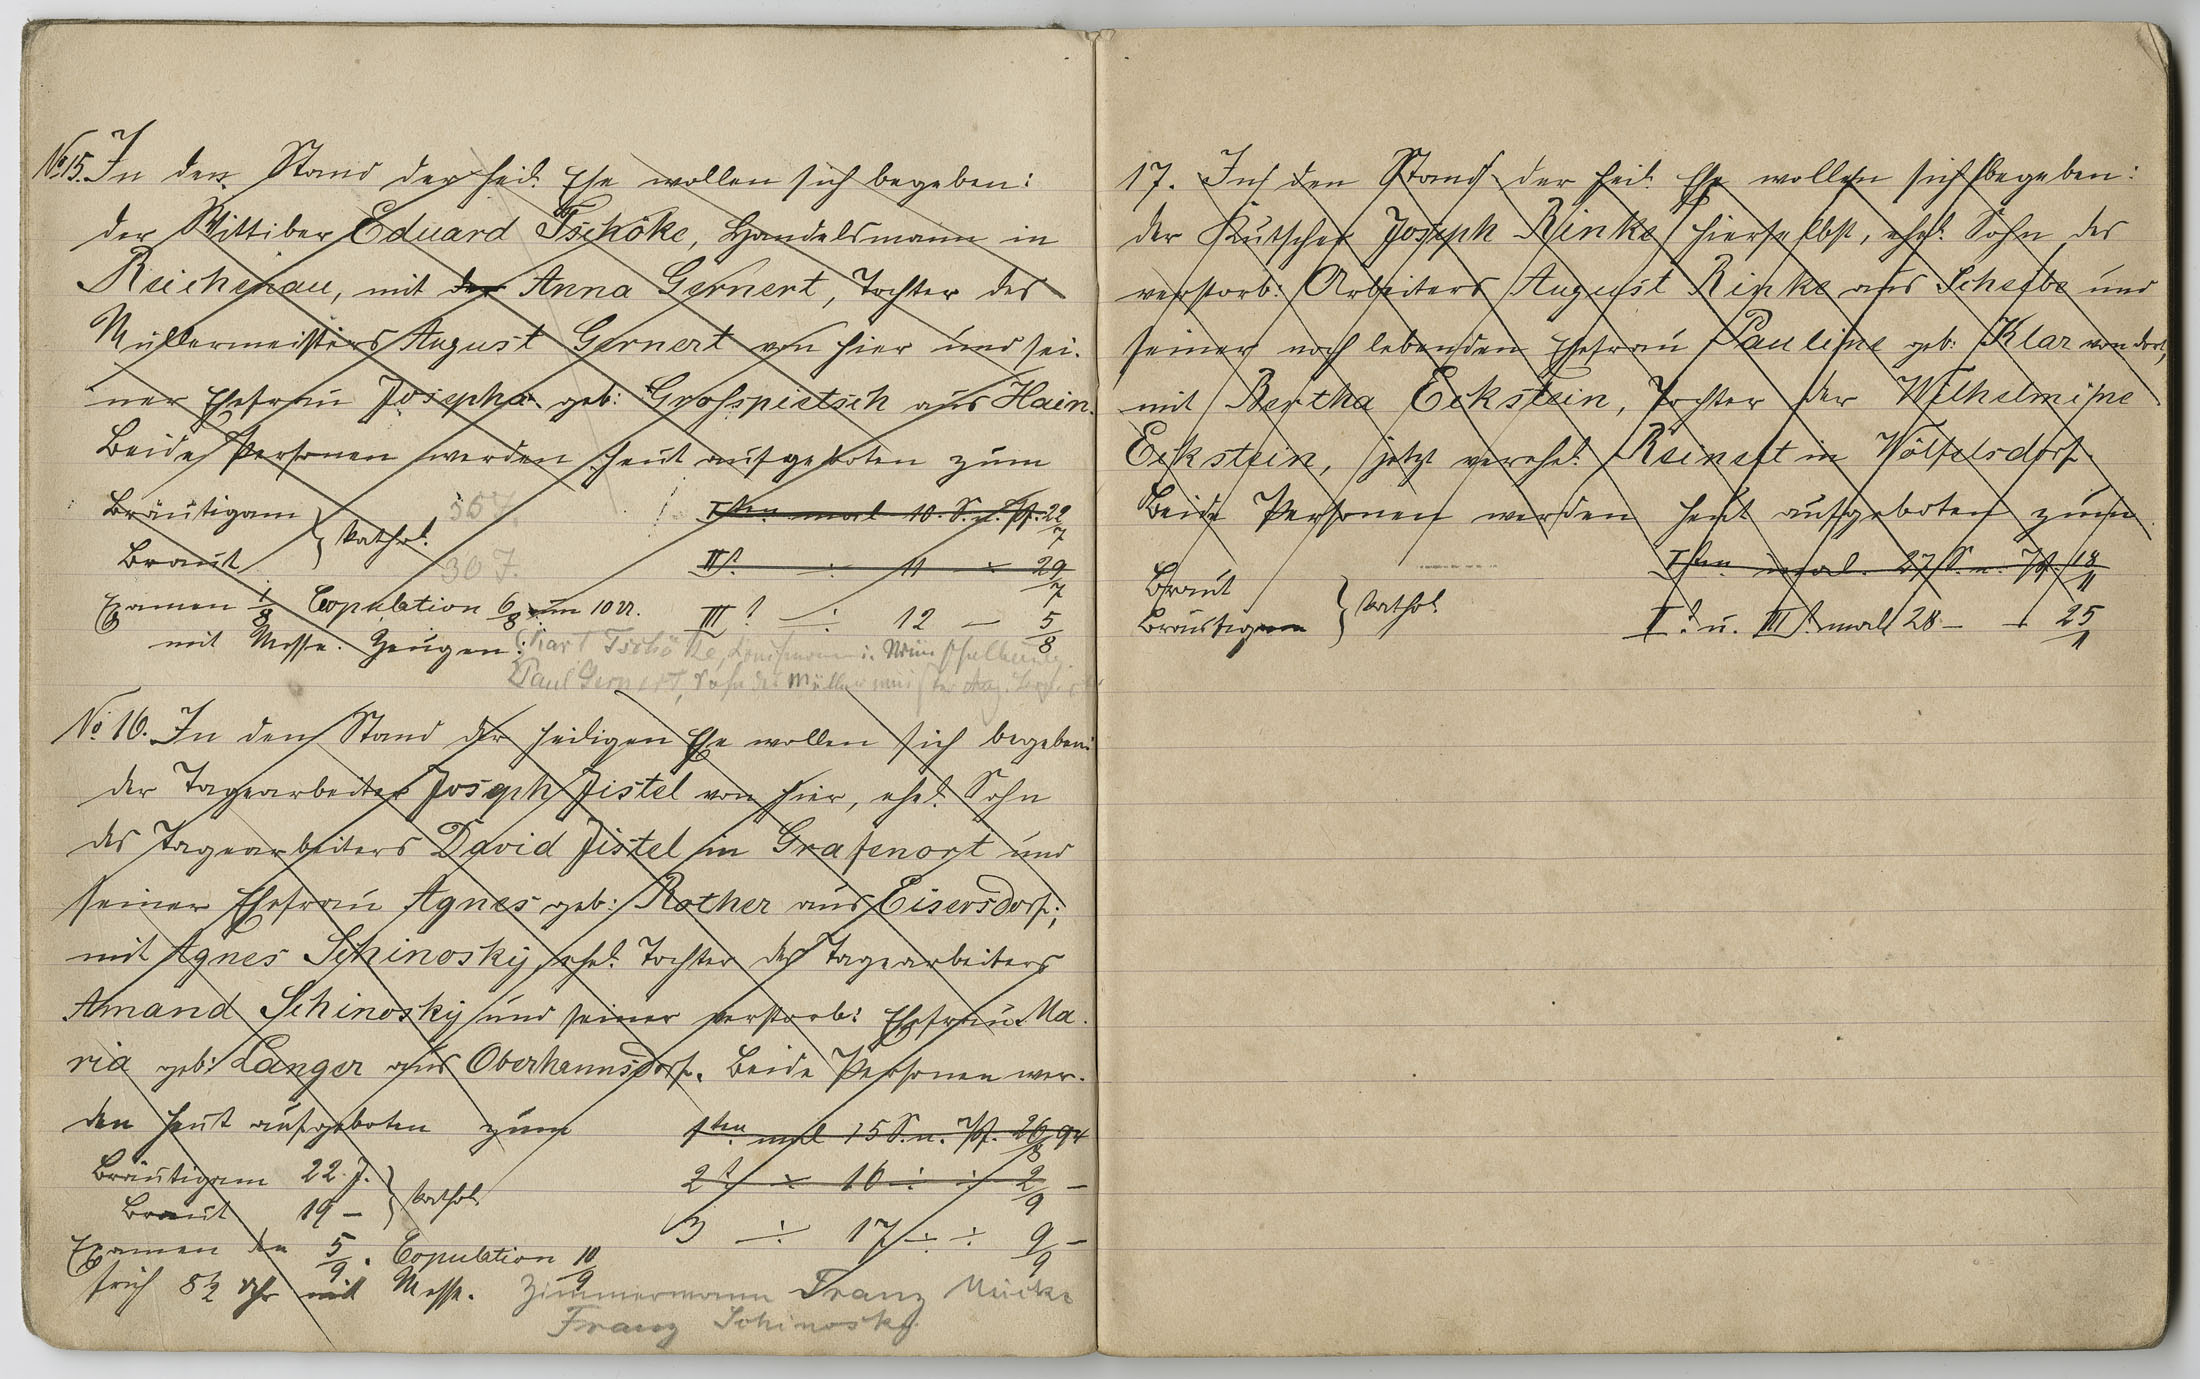 No 15. In den Stand der heil. Ehe wollen sich begeben:
der Wittiber Eduard Tschöke, Handelsmann in
Reichenau, mit der Anna Gernert, Tochter des
Müllermeisters August Gernert von hier und sei-
ner Ehefrau Josepha geb: Großpietsch aus Hain.
Beide Personen werden heut aufgeboten zum
Bräutigam } kathol. 35 J.
Braut 30 J.
Iten mal 10. S. n. Pf. 22/7
IIt. ÷ 11 ÷ 29/7
III t ÷ 12 — 5/8
Examen 1/8 Copulation 6/8 um 10 U.
mit Messe. Zeugen:
Karl Tschöke,
Paul Gernert, Sohn des Müllermeister Aug. Gernert
No 16. In den Stand der heiligen Ehe wollen sich begeben:
der Tagearbeiter Joseph Jistel von hier, ehel. Sohn
des Tagearbeiters David Jistel in Grafenort und
seiner Ehefrau Agnes geb: Rother aus Eisersdorf;
mit Agnes Schinosky, ehel. Tochter des Tagearbeiters
Amand Schinosky und seiner verstorb: Ehefrau Ma-
ria geb: Langer aus Oberhannsdorf. Beide Personen wer-
den heut aufgeboten zum
1ten mal 15 S. n. Pf. 26/8 94
2t ÷ 16 ÷ ÷ 2/9 —
3 ÷ 17 ÷ ÷ 9/9 —
Bräutigam 22 J. } kathol.
Braut 19 —
Examen den 5/9. Copulation 10/9
früh 8½ Uhr mit Messe. Zimmermann Franz Mücke
Franz Schinosky
17. In den Stand der heil. Ehe wollen sich begeben:
der Kutscher Joseph Rinke hierselbst, ehel. Sohn des
verstorb: Arbeiters August Rinke aus Scheibe und
seiner noch lebenden Ehefrau Pauline geb: Klar von dort,
mit Bertha Eckstein, Tochter der Wilhelmine
Eckstein, jetzt verehel. Reinelt in Wölfelsdorf.
Beide Personen werden heut aufgeboten zum
Iten mal. 27 S. n. Pf. 18/11
II t. u. III t. mal 28 — 25/11
Braut
Bräutigam } kathol.